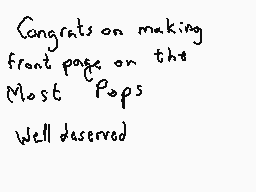 Congrats on making
front page on the
Most Pops
Well deserved